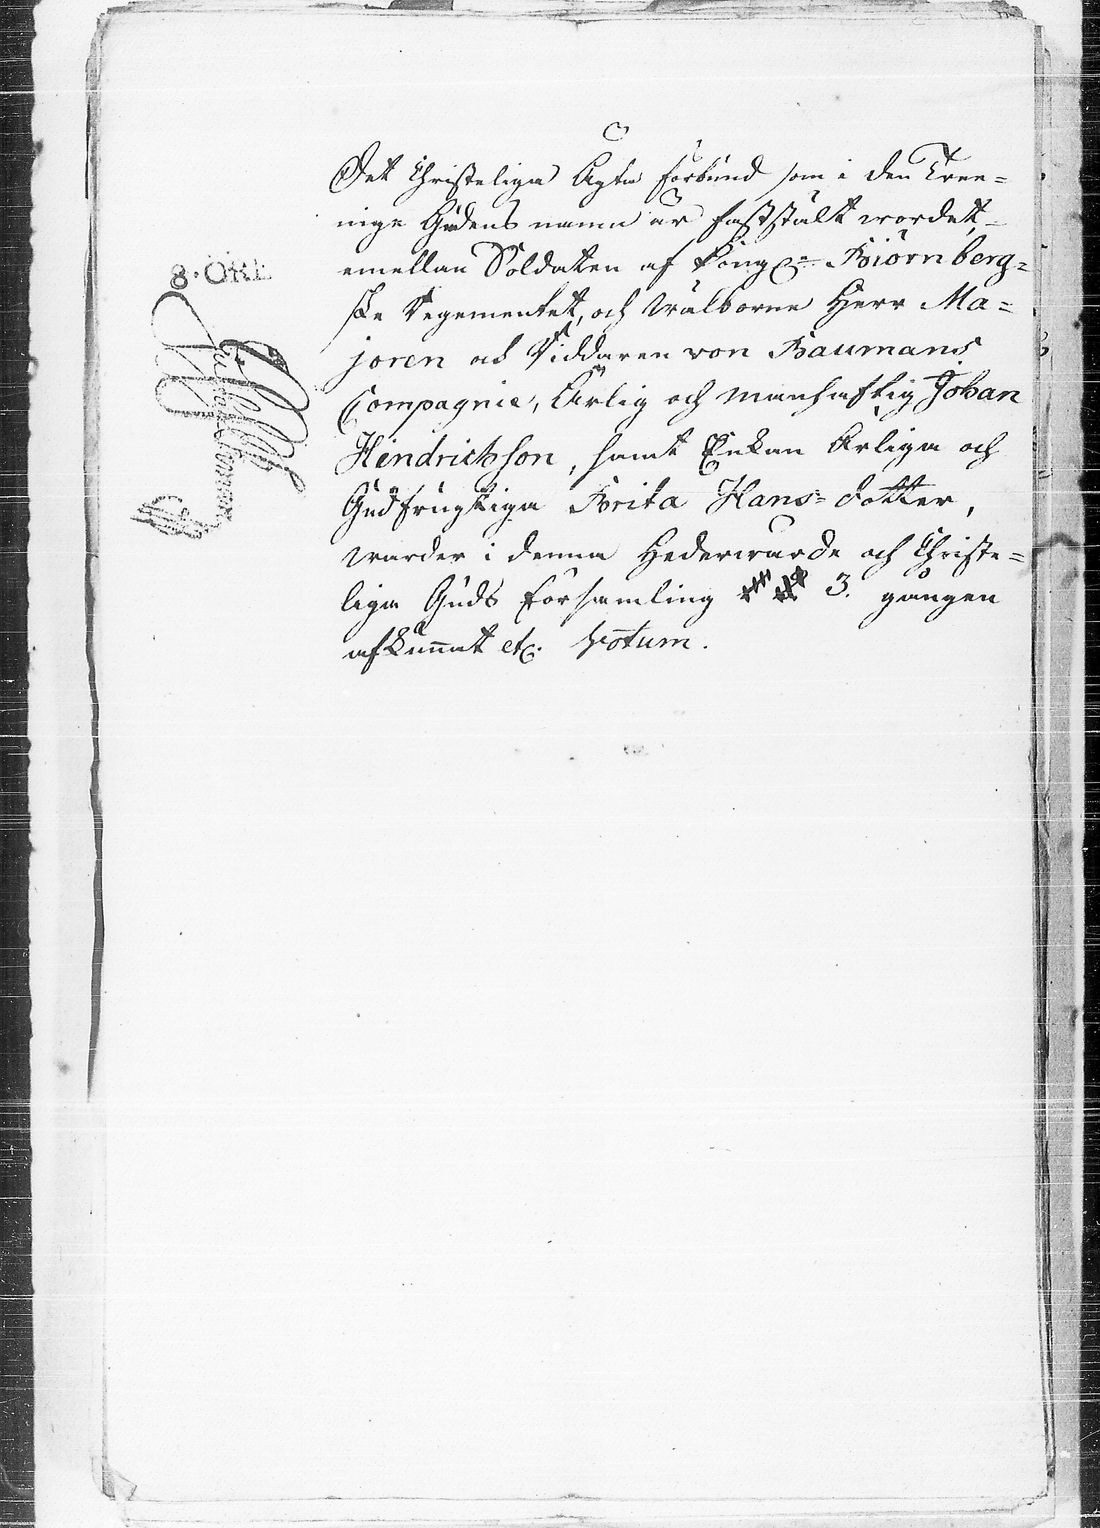 8·ÖRE
Det Christeliga Ägta förbund som i den Tree=
nige Gudens namn är faststält wordet,
emellan Soldaten af Kongl. Biörnberg=
ske Regementet, och Wälborne Herr Ma=
joren och Riddaren von Baumans
Compagnie, Ärlig och Manhaftig Johan
Hendrichson, samt Enkan Ärliga och
Gudfrugtiga Brita Hans=dotter,
warder i denna Hederwärde och Christe=
liga Guds församling 3. gången
afkunnat etc. Votum.